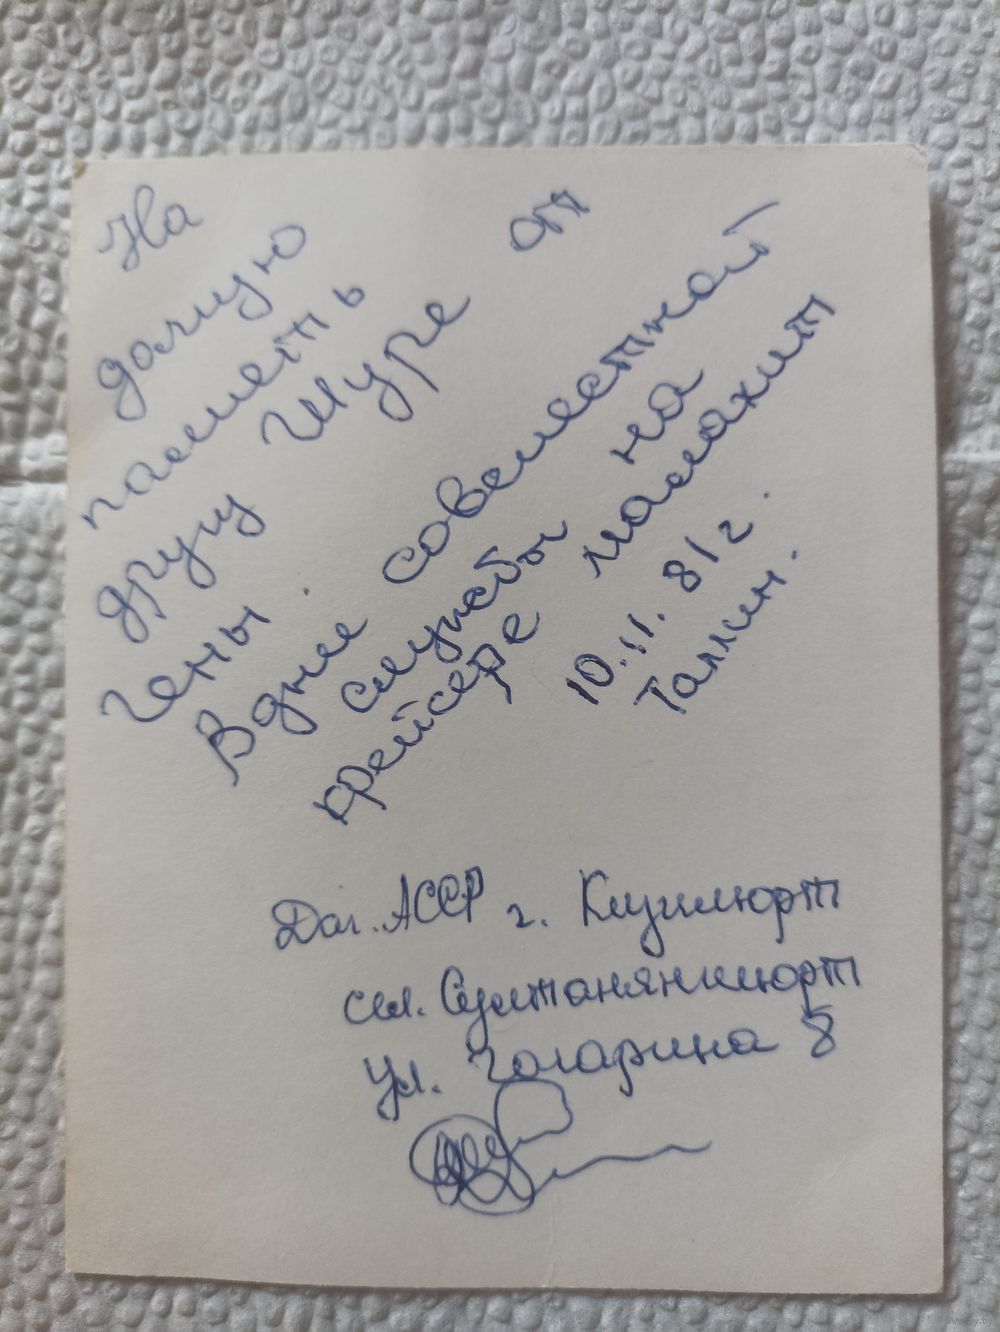 На
долгую
память
другу Шуре от
Гены.
В дни совместной
службы на
крейсере малахит
10.11.81г.
Таллин.
Даг. АССР г. Кизилюрт
сел. Султанянгиюрт
ул. Гагарина 8